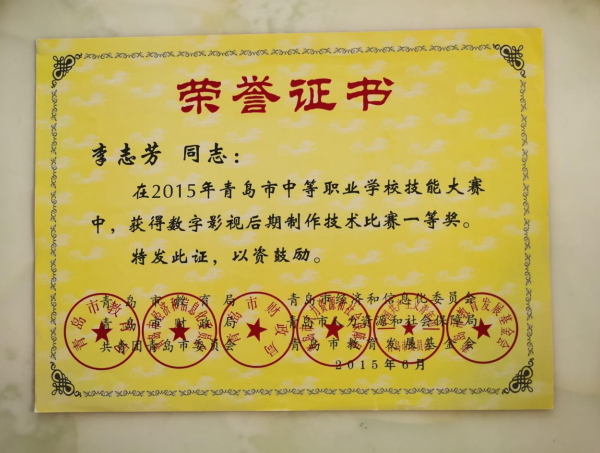 荣誉证书
李志芳 同志：
在2015年青岛市中等职业学校技能大赛
中，获得数字影视后期制作技术比赛一等奖。
特发此证，以资鼓励。
青岛市教育局 青岛市经济和信息化委员会
青岛市财政局 青岛市人力资源和社会保障局
共青团青岛市委员会 青岛市教育发展基金会
2015年6月